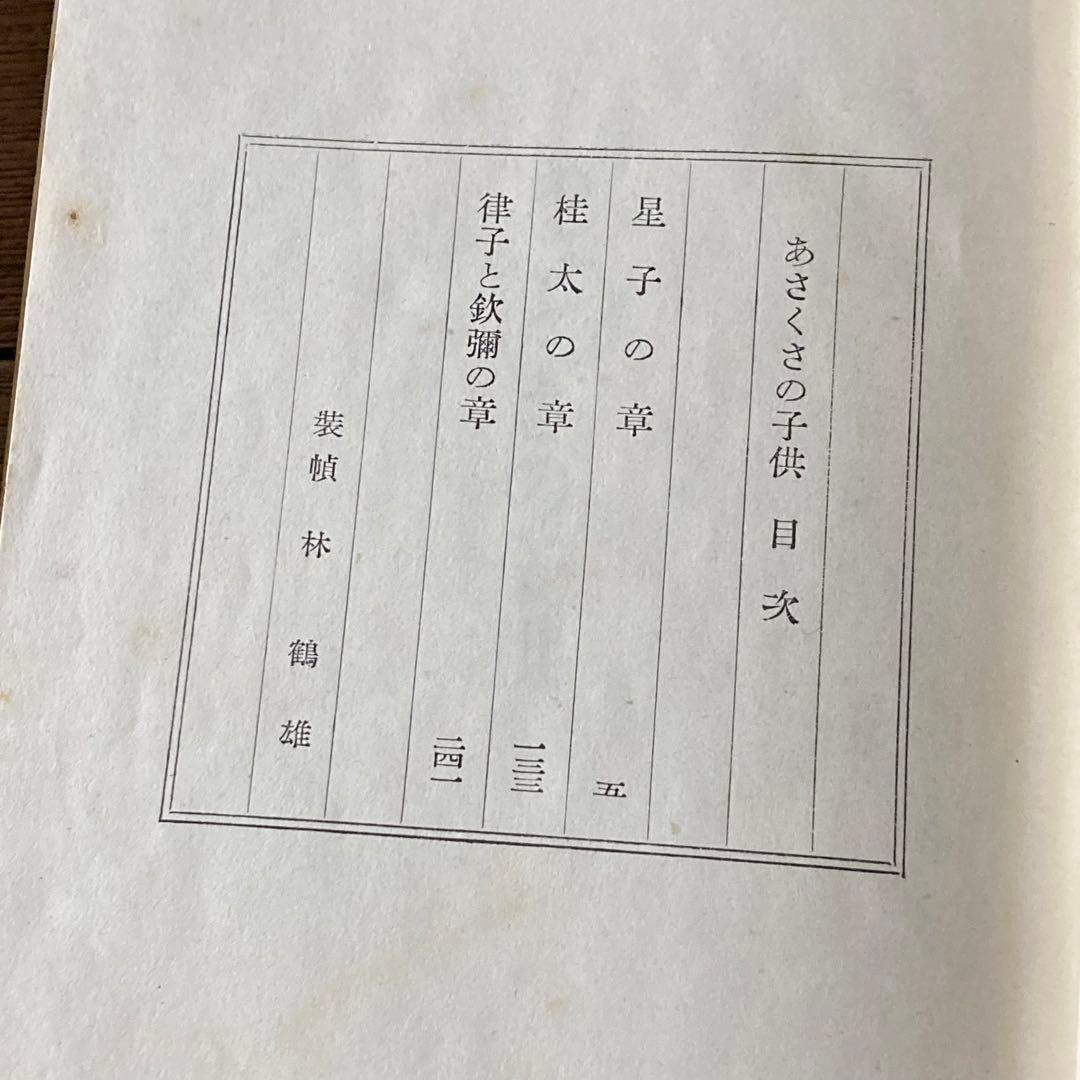 あさくさの子供 目次
星子の章 五
桂太の章 一三三
律子と欽彌の章 二四一
裝幀 林 鶴雄